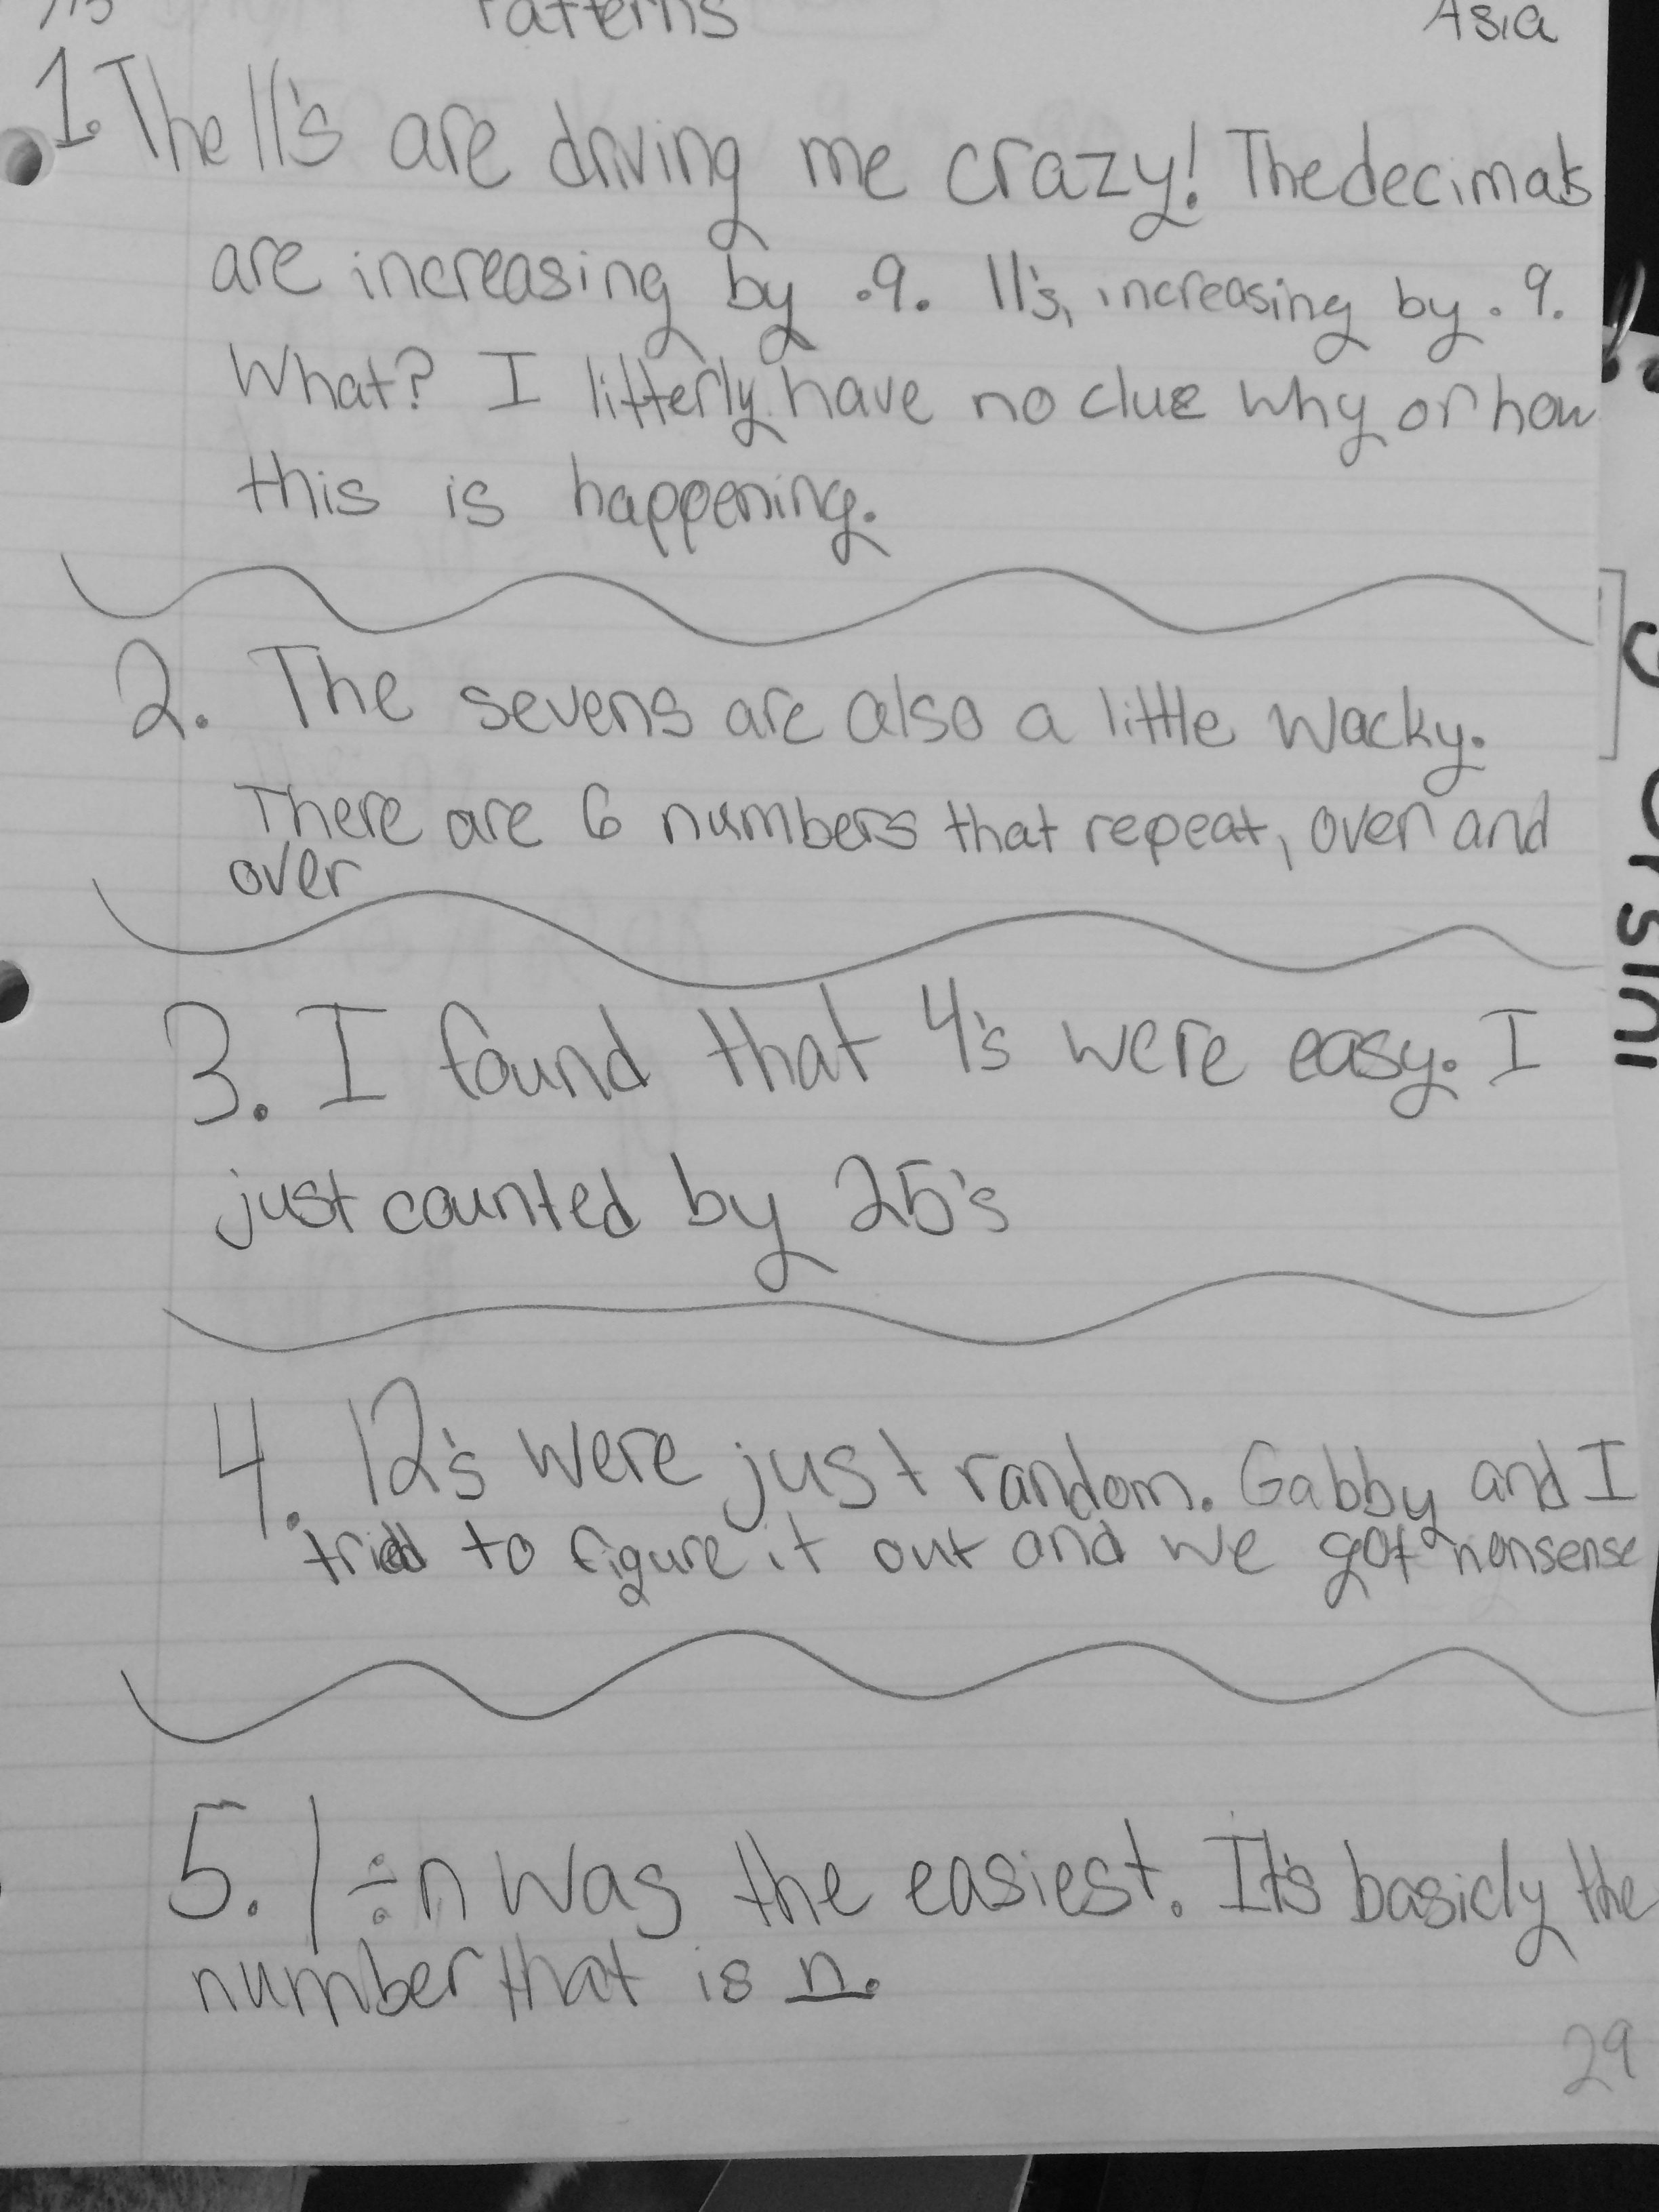 Patterns Asia
1. The 11's are driving me crazy! The decimals
are increasing by .9. 11's, increasing by .9.
What? I litterly have no clue why or how
this is happening.
2. The sevens are also a little wacky.
There are 6 numbers that repeat, over and
over
3. I found that 4's were easy. I
just counted by 25's
4. 12's were just random. Gabby and I
tried to figure it out and we got nonsense
5. 1÷n was the easiest. It's basicly the
number that is n.
29